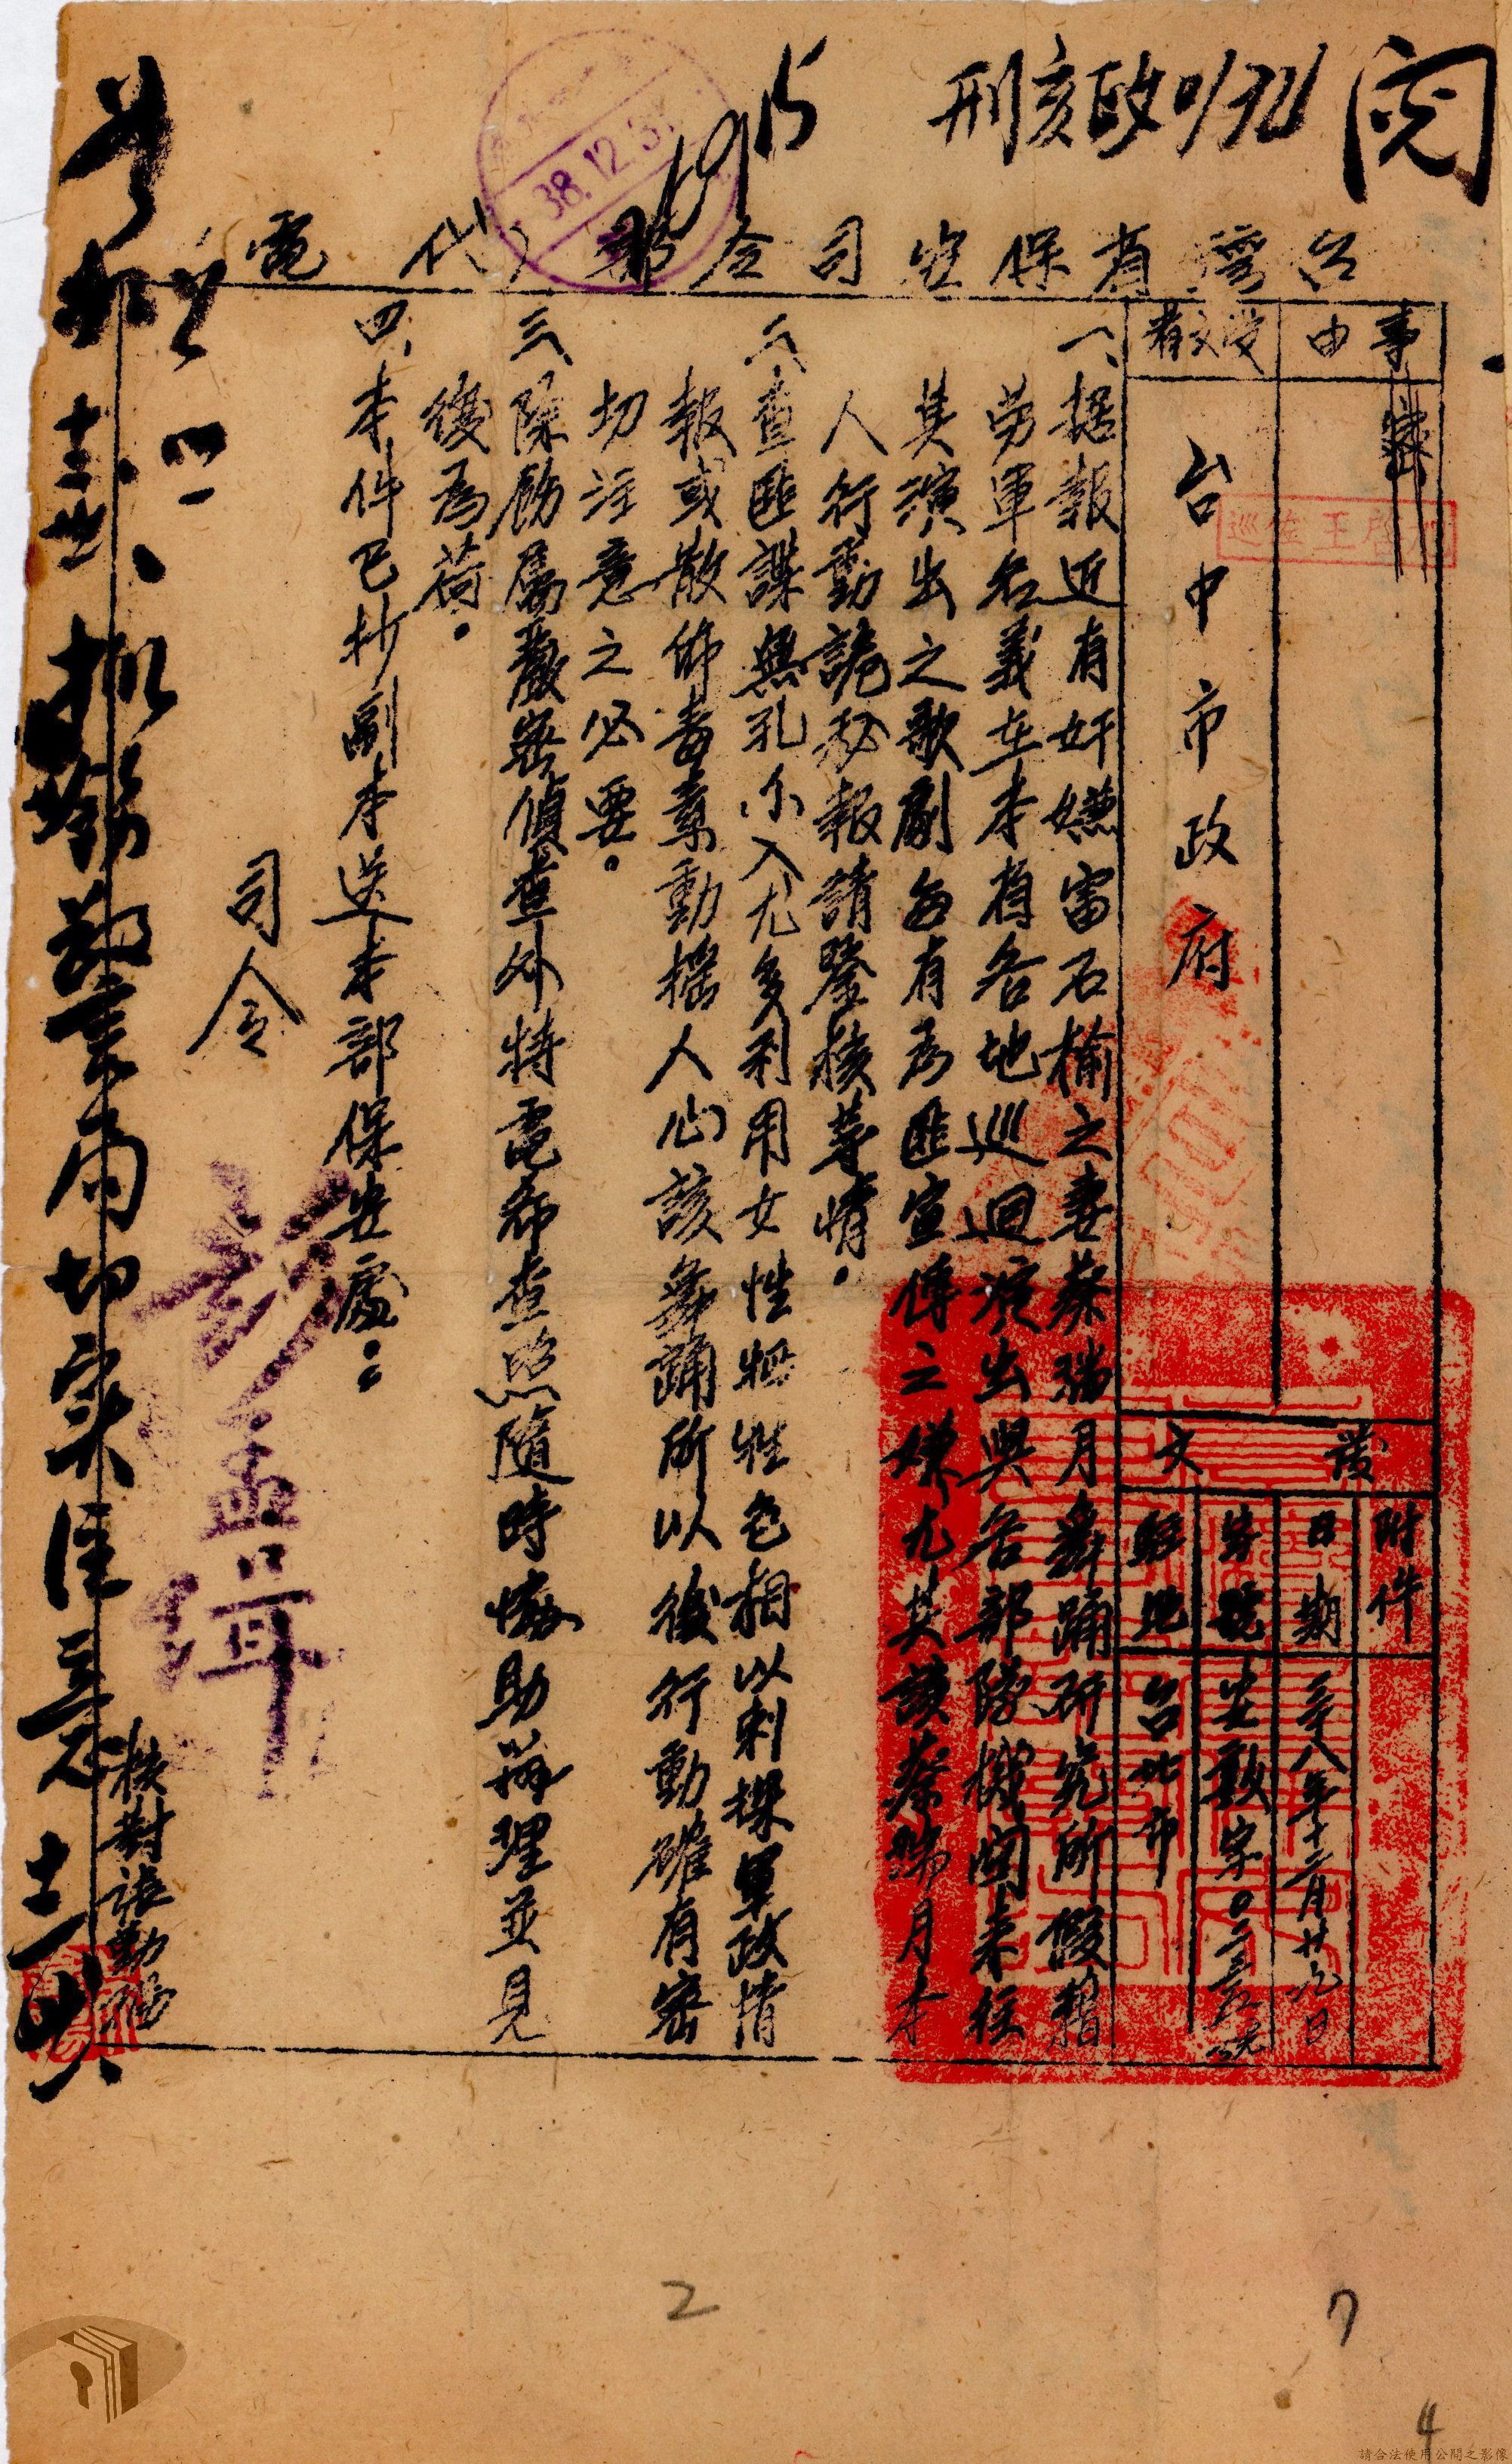 閱
刑亥政
台灣省保安司令部（代電）
38.12.3
事由
受文者
台中市政府
巡佐王啓
發文
附件
日期
三十八年十二月廿九日
字號
安敦字
駐地
台北市
一、據報近有奸嫌雷石榆之妻蔡瑞月舞踊研究所假藉
勞軍名義在本省各地巡迴演出與各部隊機関來往
其演出之歌劇每有為匪宣傳之嫌尤其該蔡瑞月本
人行動詭秘報請鑒核等情。
二、查匪諜無孔不入尤多利用女性牺牲色相以刺探軍政情
報或散佈毒素動搖人心該舞踊所以後行動確有密
切注意之必要。
三、除飭屬嚴密偵查外特電希查照隨時協助辦理並見
復為荷。
四、本件已抄副本送本部保安處：
司令
彭孟緝
校對
擬飭警局切实注意
2
7
4
請合法使用公開之影像